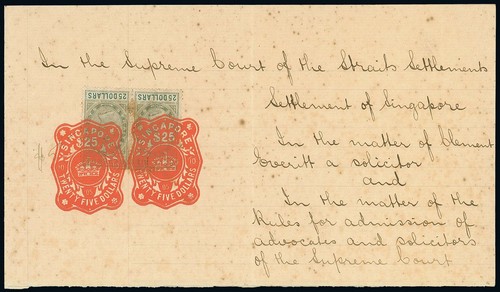 In the Supreme Court of the Straits Settlements
Settlement of Singapore
25 DOLLARS 25 DOLLARS
SINGAPORE SINGAPORE
$25 $25
TWENTY FIVE DOLLARS TWENTY FIVE DOLLARS
In the matter of Clement
Everitt a solicitor
and
In the matter of the
Rules for admission of
advocates and solicitors
of the Supreme Court